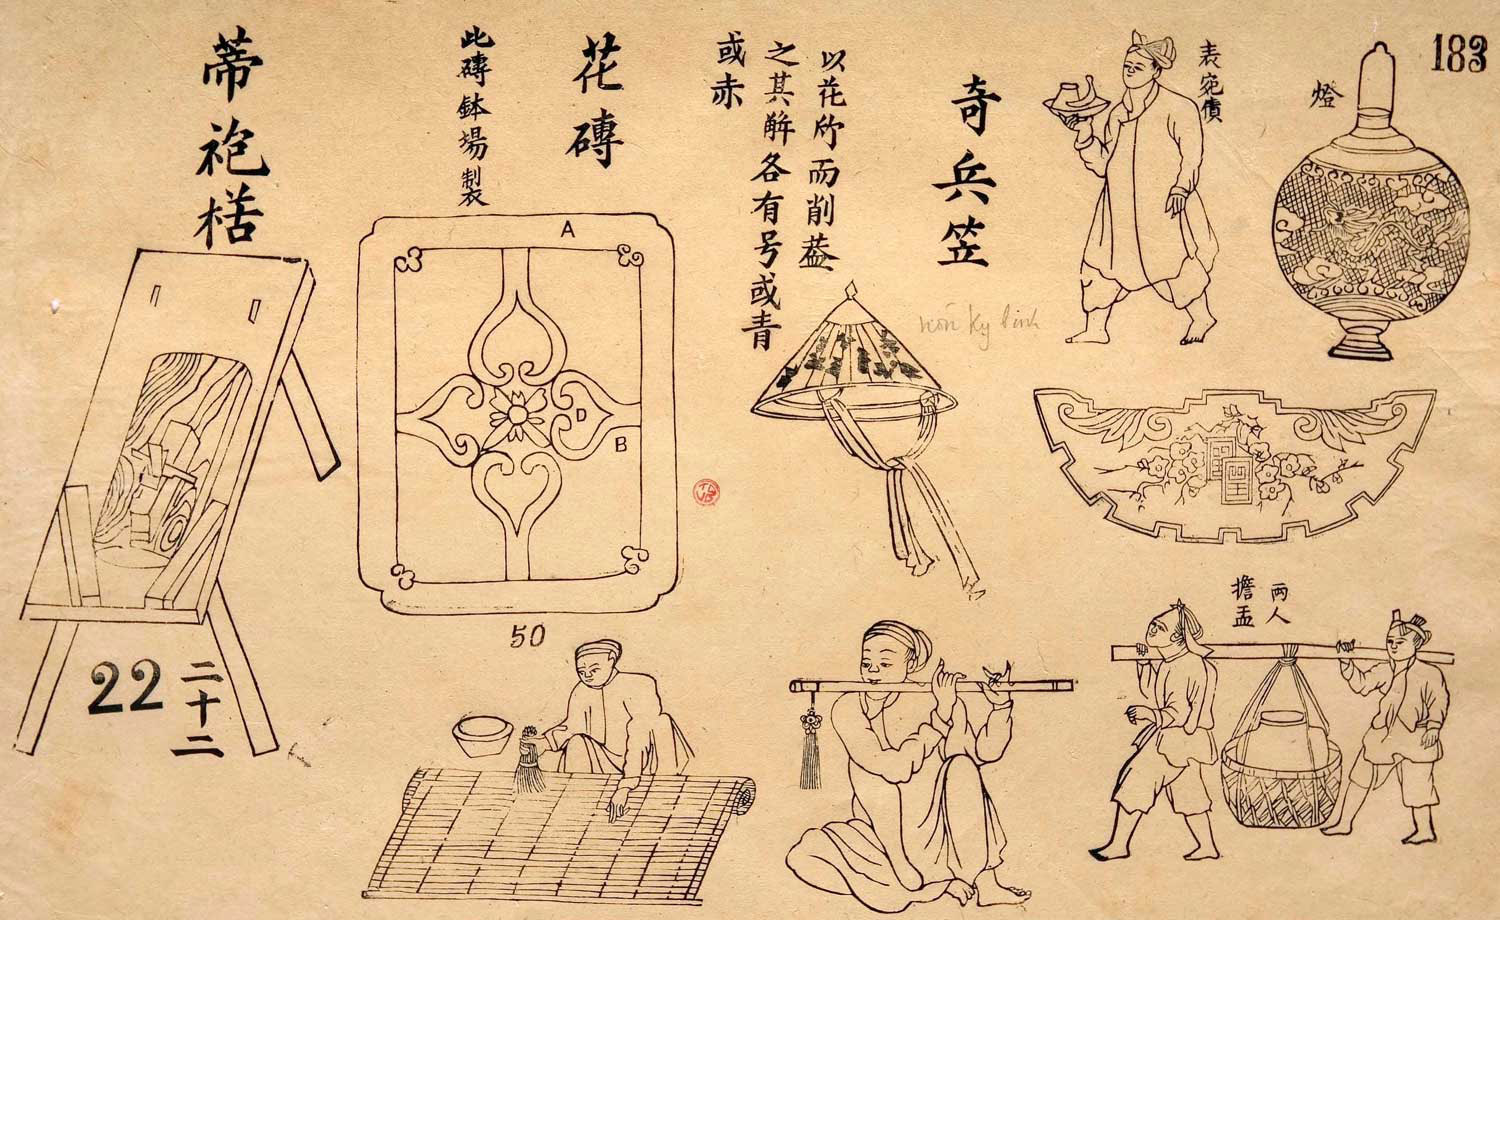 183
燈
表宛債
奇兵笠
以花竹而削葢
之其解各有号或青
或赤
nón Ký Binh
花磚
此磚鉢場製
A
D
B
50
蒂袍楛
22
二十二
兩人
擔盂